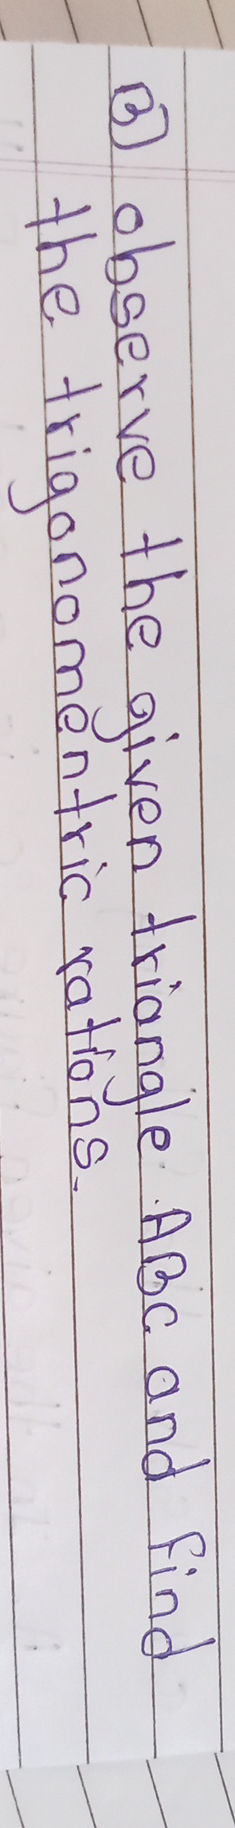 B) observe the given triangle ABC and find
the trigonomentric rations.